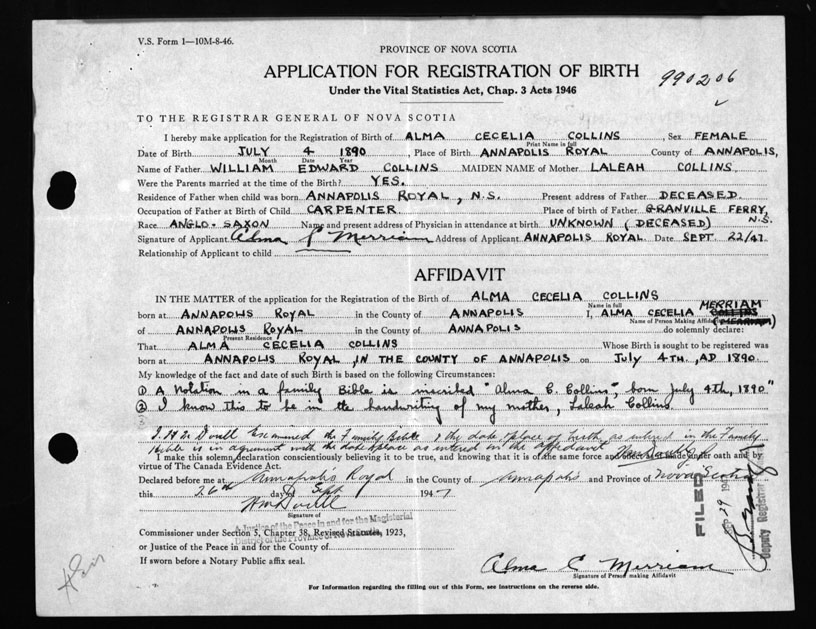 V.S. Form 1—10M-8-46.
PROVINCE OF NOVA SCOTIA
APPLICATION FOR REGISTRATION OF BIRTH
990206
Under the Vital Statistics Act, Chap. 3 Acts 1946
TO THE REGISTRAR GENERAL OF NOVA SCOTIA
I hereby make application for the Registration of Birth of ALMA CECELIA COLLINS, Sex FEMALE
Print Name in full
Date of Birth JULY 4 1890, Place of Birth ANNAPOLIS ROYAL County of ANNAPOLIS,
Month Date Year
Name of Father WILLIAM EDWARD COLLINS MAIDEN NAME of Mother LALEAH COLLINS
Were the Parents married at the time of the Birth? YES.
Residence of Father when child was born ANNAPOLIS ROYAL, N.S. Present address of Father DECEASED
Occupation of Father at Birth of Child CARPENTER Place of birth of Father GRANVILLE FERRY,
N.S.
Race ANGLO-SAXON Name and present address of Physician in attendance at birth UNKNOWN (DECEASED)
Signature of Applicant Alma C Merriam Address of Applicant ANNAPOLIS ROYAL Date SEPT. 22/47.
Relationship of Applicant to child
AFFIDAVIT
IN THE MATTER of the application for the Registration of the Birth of ALMA CECELIA COLLINS
Name in full
MERRIAM
born at ANNAPOLIS ROYAL in the County of ANNAPOLIS I, ALMA CECELIA COLLINS
Name of Person Making Affidavit (MERRIAM)
of ANNAPOLIS ROYAL in the County of ANNAPOLIS do solemnly declare:
Present Residence
That ALMA CECELIA COLLINS Whose Birth is sought to be registered was
born at ANNAPOLIS ROYAL, IN THE COUNTY OF ANNAPOLIS on July 4TH., AD 1890.
My knowledge of the fact and date of such Birth is based on the following Circumstances:
① A notation in a family Bible is inscribed "Alma C. Collins," born July 4th, 1890"
② I know this to be in the handwriting of my mother, Laleah Collins.
③
Examined the Family Bible & the date & place of birth, as entered in the Family
Bible is in agreement with the date & place as entered in the affidavit
I make this solemn declaration conscientiously believing it to be true, and knowing that it is of the same force and effect as if made under oath and by
virtue of The Canada Evidence Act.
Declared before me at Annapolis Royal in the County of Annapolis and Province of Nova Scotia
this 26th day of Sept 1947
Signature of
A Justice of the Peace in and for the Magisterial
District of the Province of Nova Scotia
Commissioner under Section 5, Chapter 38, Revised Statutes, 1923,
or Justice of the Peace in and for the County of
If sworn before a Notary Public affix seal.
FILED
29 1947
Deputy Registrar
Alma C Merriam
Signature of Person making Affidavit
For Information regarding the filling out of this Form, see instructions on the reverse side.